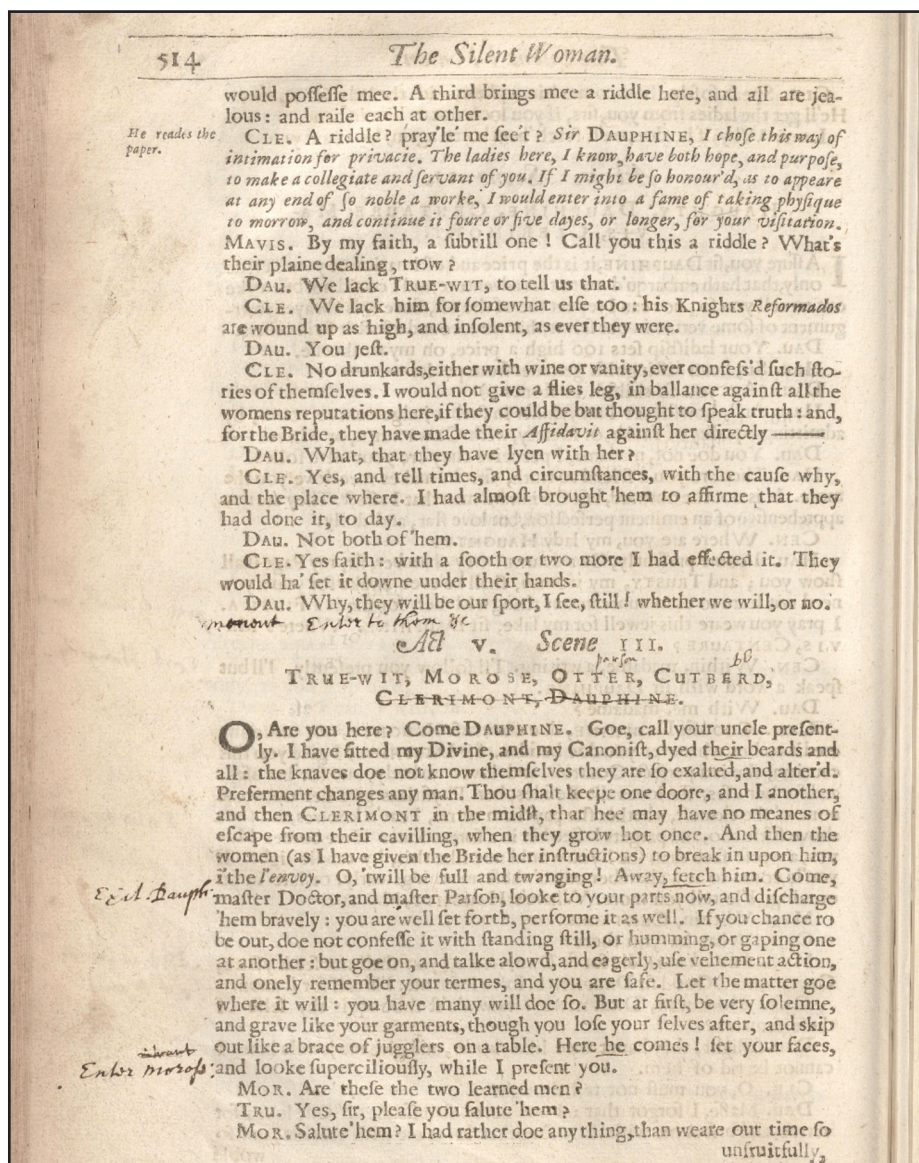 514 The Silent Woman.
would poſſeſſe mee. A third brings mee a riddle here, and all are jea-
lous: and raile each at other.
He reades the
paper.
CLE. A riddle? pray'le' me ſee't? Sir DAUPHINE, I choſe this way of
intimation for privacie. The ladies here, I know, have both hope, and purpoſe,
to make a collegiate and ſervant of you. If I might be ſo honour'd, as to appeare
at any end of ſo noble a worke, I would enter into a fame of taking phyſique
to morrow, and continue it foure or five dayes, or longer, for your viſitation.
MAVIS. By my faith, a ſubtill one! Call you this a riddle? What's
their plaine dealing, trow?
DAU. We lack TRUE-WIT, to tell us that.
CLE. We lack him for ſomewhat elſe too: his Knights Reformados
are wound up as high, and inſolent, as ever they were.
DAU. You jeſt.
CLE. No drunkards, either with wine or vanity, ever confeſs'd ſuch ſto-
ries of themſelves. I would not give a flies leg, in ballance againſt all the
womens reputations here, if they could be but thought to ſpeak truth: and,
for the Bride, they have made their Affidavit againſt her directly ——
DAU. What, that they have lyen with her?
CLE. Yes, and tell times, and circumſtances, with the cauſe why,
and the place where. I had almoſt brought 'hem to affirme that they
had done it, to day.
DAU. Not both of 'hem.
CLE. Yes faith: with a ſooth or two more I had effected it. They
would ha' ſet it downe under their hands.
DAU. Why, they will be our ſport, I ſee, ſtill! whether we will, or no.
Enter to them &c
Act V. Scene III.
parſon
TRUE-WIT, MOROSE, OTTER, CUTBERD,
CLERIMONT, DAUPHINE.
O, Are you here? Come DAUPHINE. Goe, call your uncle preſent-
ly. I have fitted my Divine, and my Canoniſt, dyed their beards and
all: the knaves doe not know themſelves they are ſo exalted, and alter'd.
Preferment changes any man. Thou ſhalt keepe one doore, and I another,
and then CLERIMONT in the midſt, that hee may have no meanes of
eſcape from their cavilling, when they grow hot once. And then the
women (as I have given the Bride her inſtructions) to break in upon him,
i'the l'envoy. O, 'twill be full and twanging! Away, fetch him. Come,
Exit. Dauph
maſter Doctor, and maſter Parſon, looke to your parts now, and diſcharge
'hem bravely: you are well ſet forth, performe it as well. If you chance to
be out, doe not confeſſe it with ſtanding ſtill, or humming, or gaping one
at another: but goe on, and talke alowd, and eagerly, uſe vehement action,
and onely remember your termes, and you are ſafe. Let the matter goe
where it will: you have many will doe ſo. But at firſt, be very ſolemne,
and grave like your garments, though you loſe your ſelves after, and skip
out like a brace of jugglers on a table. Here he comes! ſet your faces,
Enter moroſs:
and looke ſuperciliouſly, while I preſent you.
MOR. Are theſe the two learned men?
TRU. Yes, ſir, pleaſe you ſalute 'hem?
MOR. Salute 'hem? I had rather doe any thing, than weare out time ſo
unfruitfully,